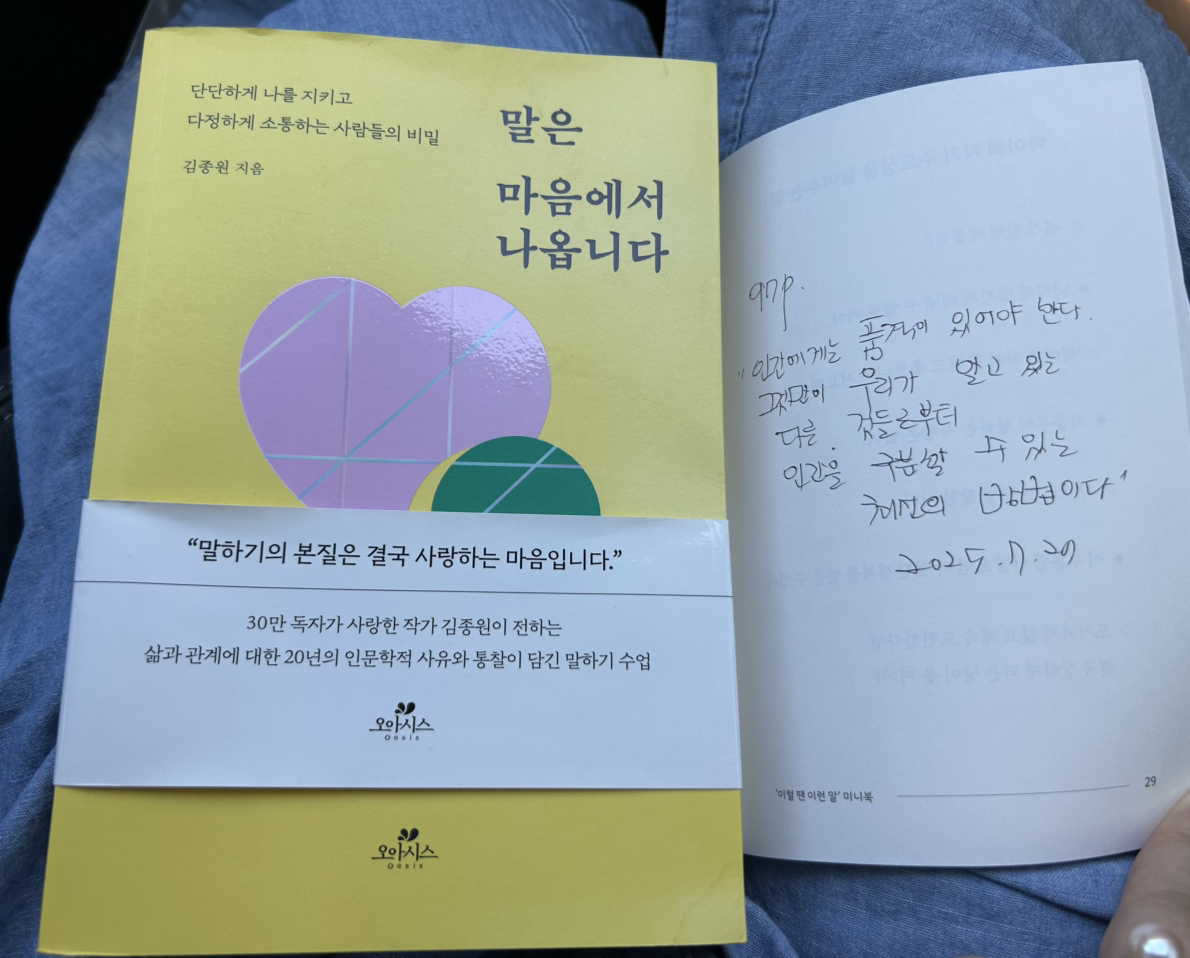 단단하게 나를 지키고
다정하게 소통하는 사람들의 비밀
김종원 지음
말은
마음에서
나옵니다
“말하기의 본질은 결국 사랑하는 마음입니다.”
30만 독자가 사랑한 작가 김종원이 전하는
삶과 관계에 대한 20년의 인문학적 사유와 통찰이 담긴 말하기 수업
오아시스
Oasis
오아시스
Oasis
97p.
"인간에게는 품격이 있어야 한다.
그것만이 우리가 알고 있는
다른 것들로부터
인간을 구분할 수 있는
최선의 방법이다"
2025.7.27
'이럴 땐 이런 말' 미니북
29